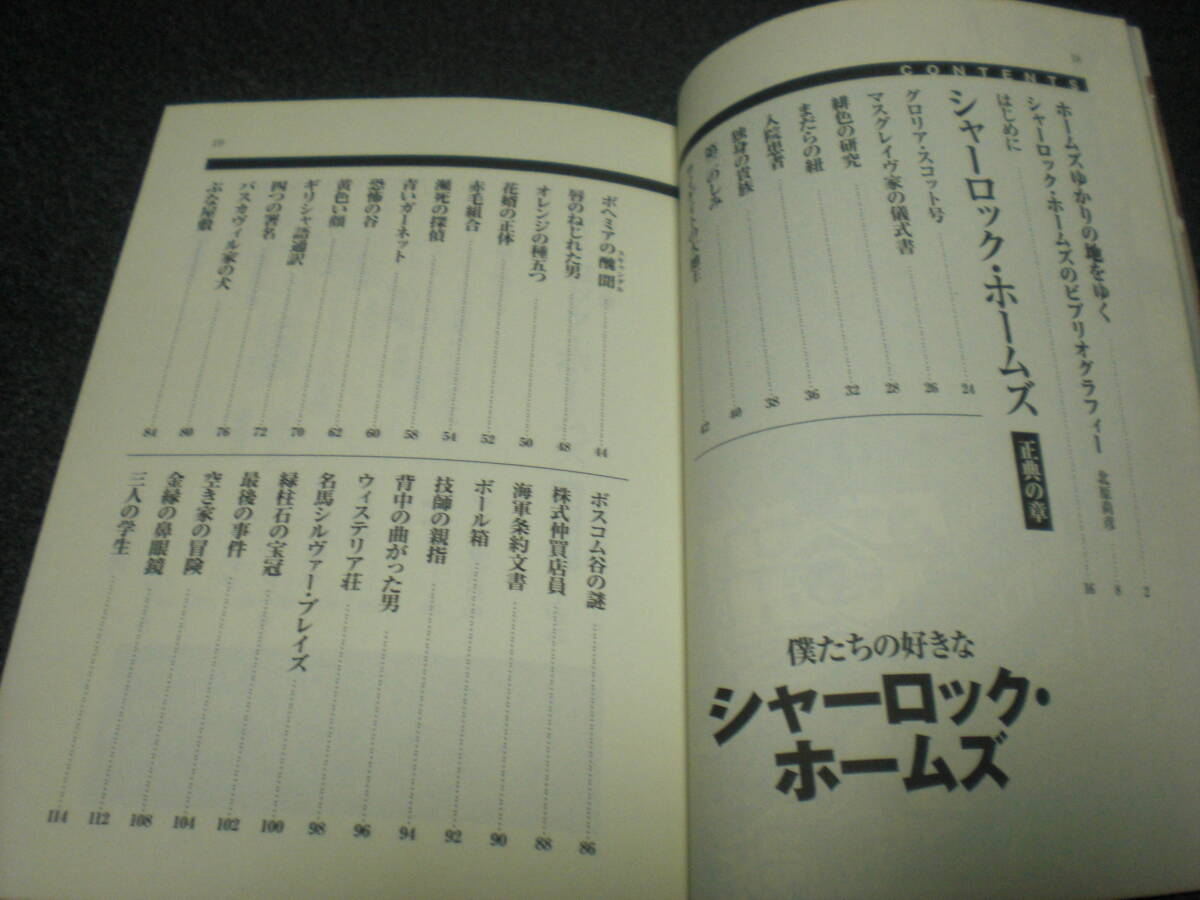 18
CONTENTS
ホームズゆかりの地をゆく 2
シャーロック・ホームズのビブリオグラフィー 北原尚彦 8
はじめに 16
シャーロック・ホームズ 正典の章
グロリア・スコット号 24
マスグレイヴ家の儀式書 26
緋色の研究 28
まだらの紐 32
入院患者 36
独身の貴族 38
第二のしみ 40
42
僕たちの好きな
シャーロック・
ホームズ
19
ボヘミアの醜聞 スキャンダル 44
唇のねじれた男 48
オレンジの種五つ 50
花婿の正体 52
赤毛組合 54
瀕死の探偵 58
青いガーネット 60
恐怖の谷 62
黄色い顔 70
ギリシャ語通訳 72
四つの署名 76
バスカヴィル家の犬 80
ぶな屋敷 84
ボスコム谷の謎 86
株式仲買店員 88
海軍条約文書 90
ボール箱 92
技師の親指 94
背中の曲がった男 96
ウィステリア荘 98
名馬シルヴァー・ブレイズ 100
緑柱石の宝冠 102
最後の事件 104
空き家の冒険 108
金縁の鼻眼鏡 112
三人の学生 114